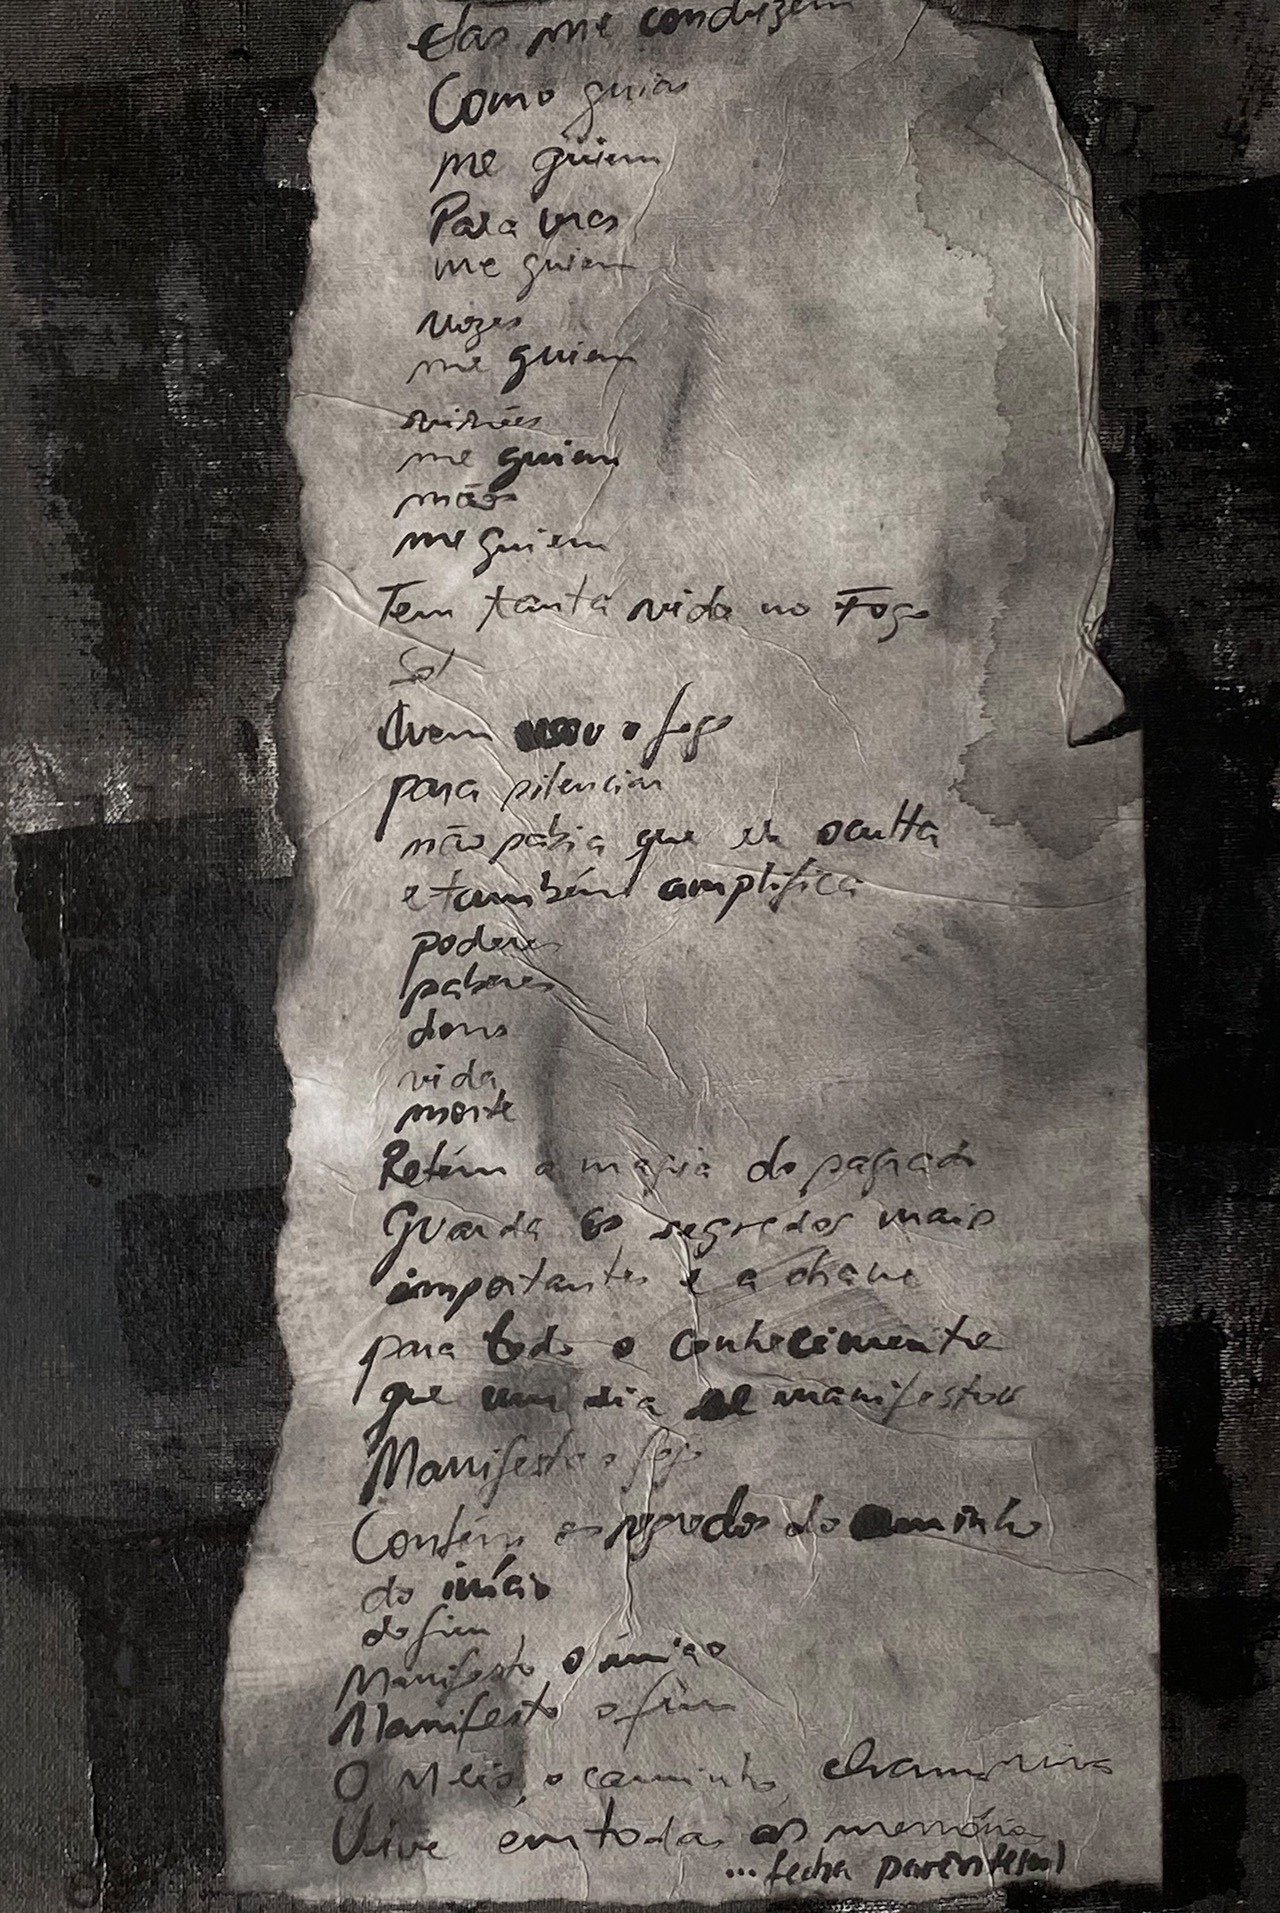 elas me conduzem
Como guias
me guiem
Para
me guiem
vozes
me guiem
visões
me guiem
mãos
me guiem
Tem tanta vida no Fogo
Sol
Quem usou o fogo
para silenciar
não sabia que ele oculta
e também amplifica
poderes
saberes
dons
vida
morte
Retém a magia do sagrado
Guarda os segredos mais
importantes e a chave
para todo o conhecimento
que um dia se manifestou
Manifesto o fogo
Contém os segredos do caminho
do início
do fim
Manifesto o início
Manifesto o fim
O Meio, o caminho, chama viva
Vive em todas as memórias
...fecha parênteses)